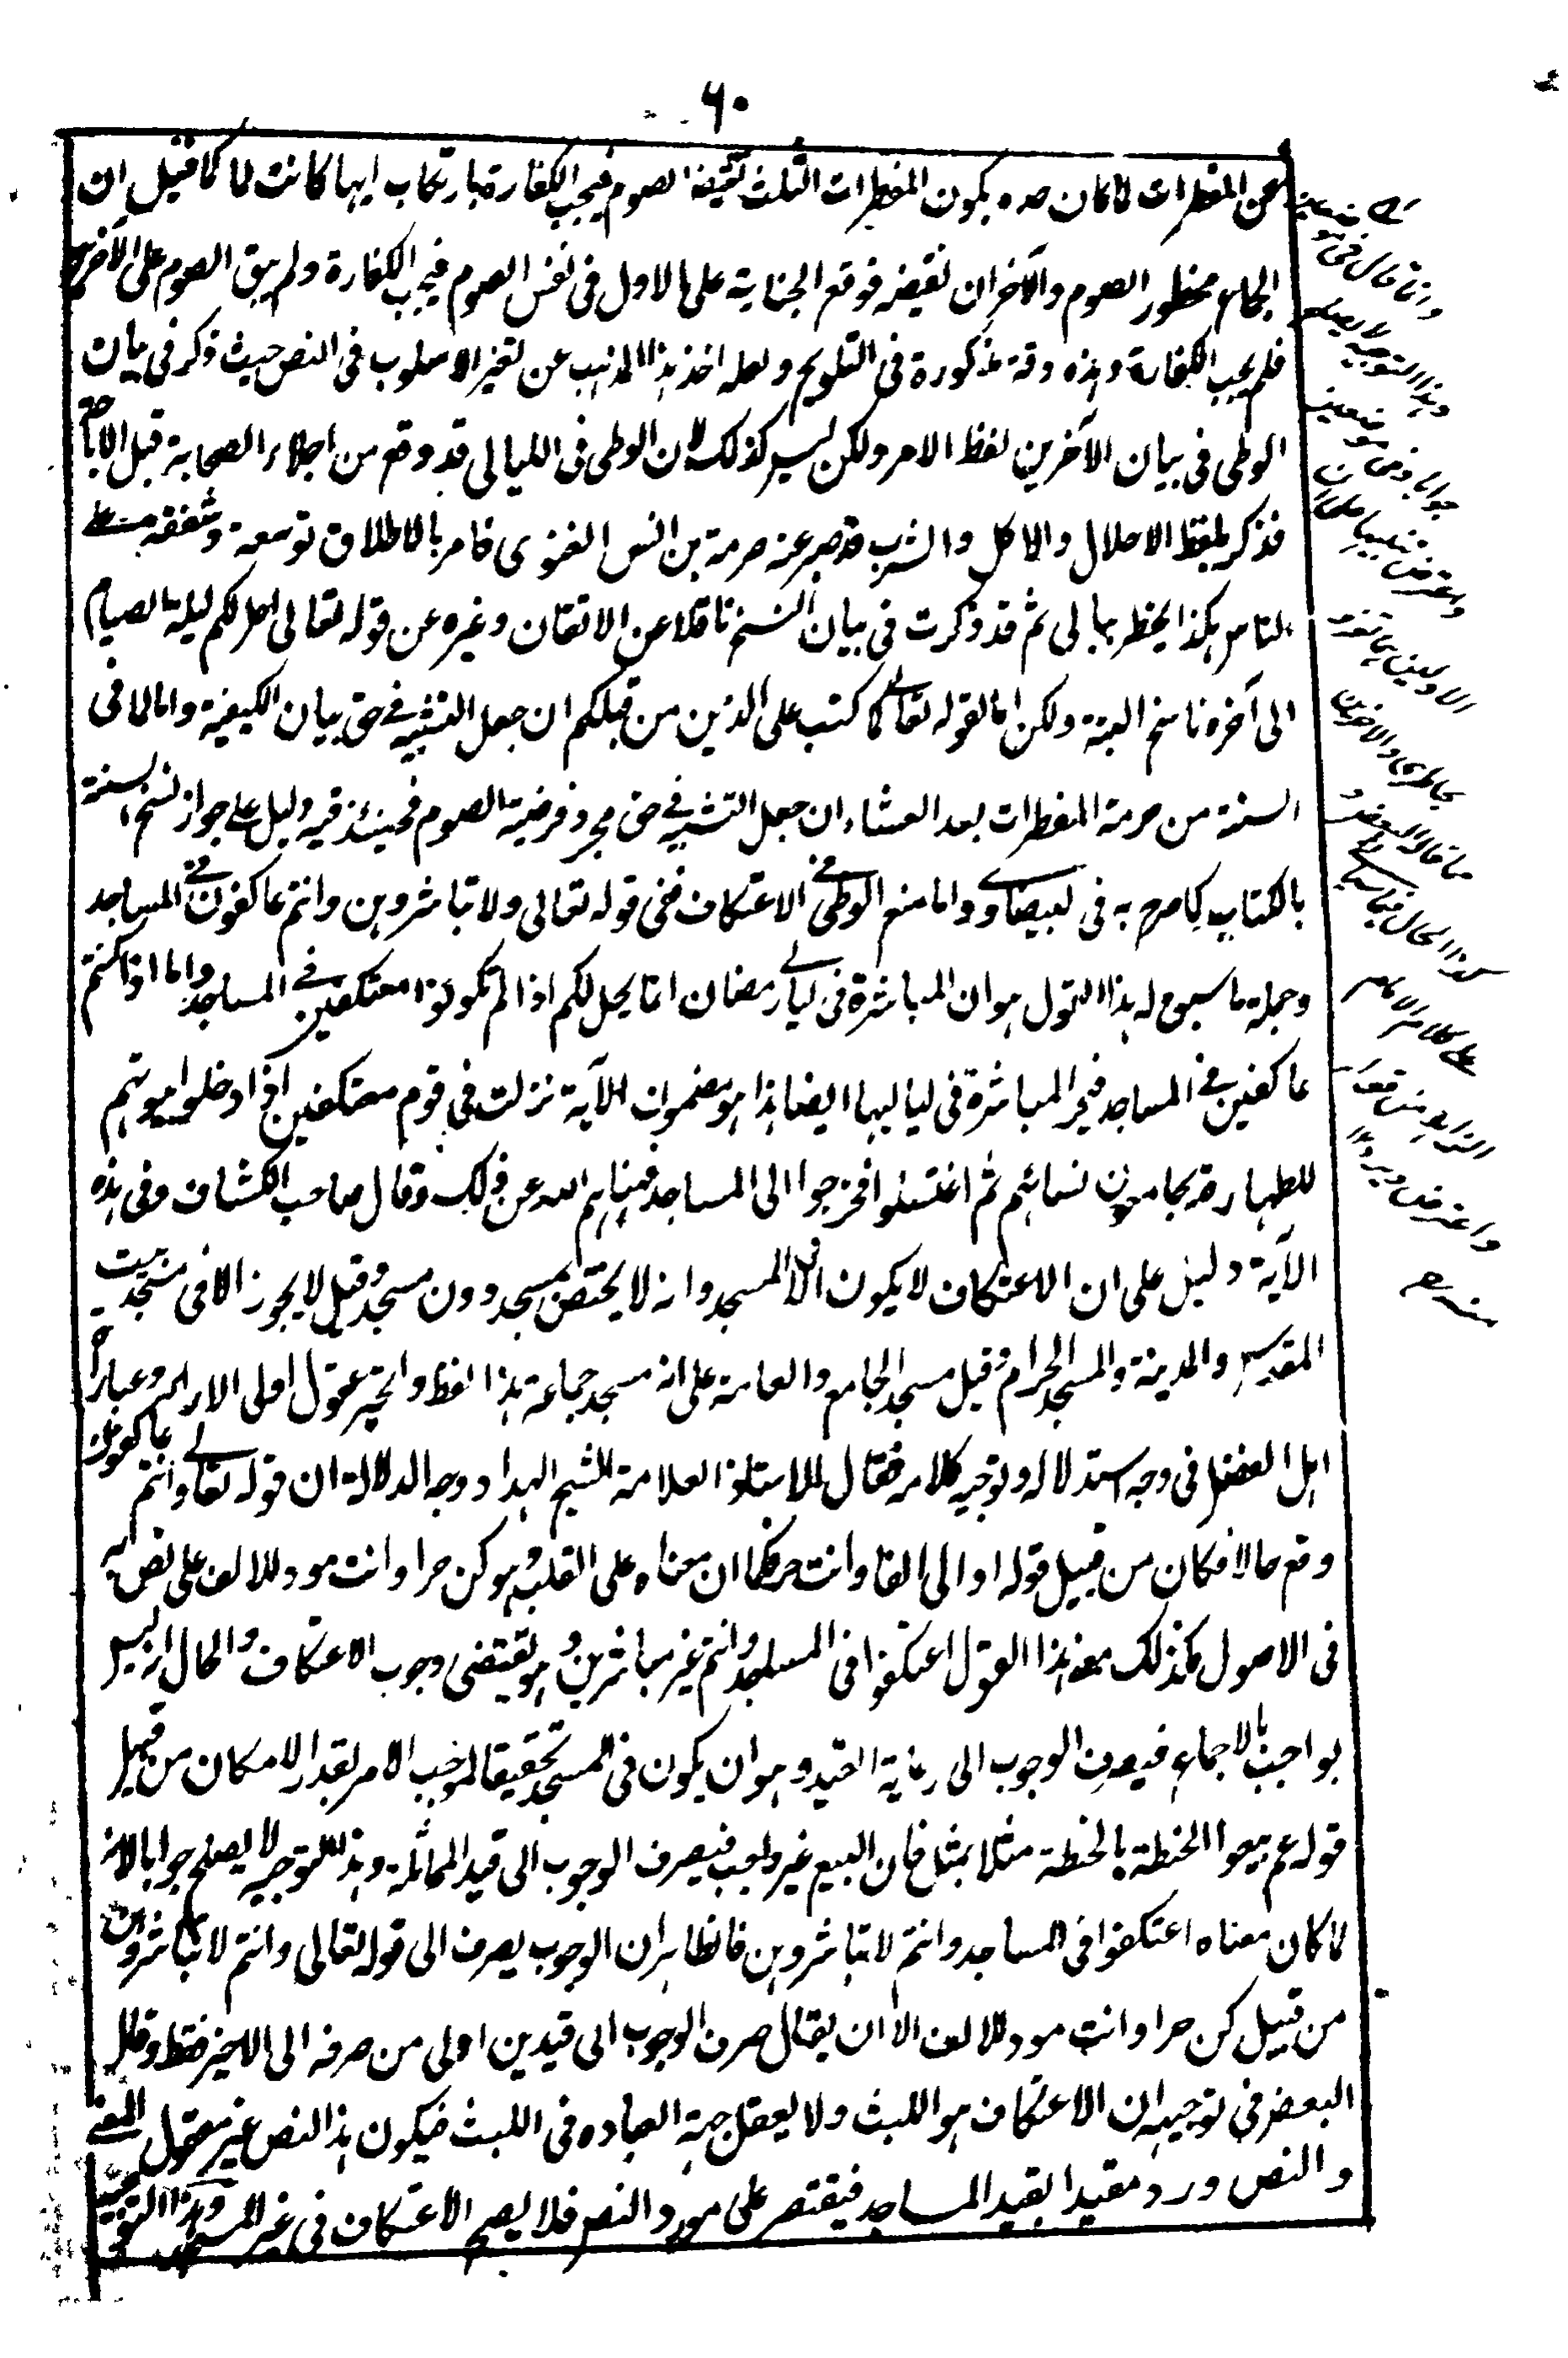 ٦٠
عن المفطرات لما كان حده يكون المفطرات الثلث نقيضة الصوم فيجب الكفارة بارتكاب ايها كانت لا كما قيل ان
الجماع محظور الصوم والآخران نقيضه فوقع الجناية على الاول فى نفس الصوم فيجب الكفارة ولم يبق الصوم على الآخرين
فلم يجب الكفارة وهذه دقة مذكورة فى التلويح ولعله اخذ هذا المذهب عن تغير الاسلوب فى النص حيث ذكر فى بيان
الوطى فى بيان الآخرين لفظ الامر ولكن ليس كذلك لان الوطى فى الليالى قد وقع من اجلاء الصحابة قبل الاباحة
فذكر بلفظ الاحلال والاكل والشرب قد صبر عنه حرمة بن انس الغنوى فامر بالاطلاق توسعة وشفقة على
الناس هكذا يخطر ببالى ثم قد ذكرت فى بيان النسخ ناقلا عن الاتقان وغيره عن قوله تعالى احل لكم ليلة الصيام
الى آخره ناسخ البتة ولكن اما لقوله تعالى كما كتب على الذين من قبلكم ان جعل التشبيه فى حق بيان الكيفية واما لما فى
السنة من حرمة المفطرات بعد العشاء ان جعل التشبيه فى حق مجرد فرضية الصوم فحينئذ فيه دليل على جواز نسخ السنة
بالكتاب كما صرح به فى البيضاوى واما منع الوطى فى الاعتكاف ففى قوله تعالى ولا تباشروهن وانتم عاكفون فى المساجد
وجملة ما سيق له هذا القول هو ان المباشرة فى ليالى رمضان انما يحل لكم اذا لم تكونوا معتكفين فى المساجد واما اذا كنتم
عاكفين فى المساجد فيحرم المباشرة فى لياليها ايضا هذا هو مضمون الآية نزلت فى قوم معتكفين اذا دخلوا بيوتهم
للطهارة يجامعون نسائهم ثم اغتسلوا فخرجوا الى المساجد فنهاهم الله عن ذلك وقال صاحب الكشاف وفى هذه
الآية دليل على ان الاعتكاف لا يكون الا فى المسجد وانه لا يختص بمسجد دون مسجد وقيل لا يجوز الا فى مسجد بيت
المقدس والمدينة والمسجد الحرام وقيل مسجد الجامع والعامة على انه مسجد جماعة هذا لفظه وتحير عقول اولى الابصار وعبارات
اهل الفضل فى وجه استدلاله وتوجيه كلامه فقال الاستاذ العلامة الشيخ الهداد وجه الدلالة ان قوله تعالى وانتم عاكفون
وقع حالا فكان من قبيل قوله اد الى الفا وانت حر كما ان معناه على القلب وهو كن حرا وانت مود للالف على نص به
فى الاصول فكذلك معنى هذا القول اعتكفوا فى المساجد وانتم غير مباشرين وهو يقتضى وجوب الاعتكاف والحال انه ليس
بواجب بالاجماع فيصرف الوجوب الى رعاية القيد وهو ان يكون فى المسجد تحقيقا لموجب الامر بقدر الامكان من قبيل
قوله عم بيعوا الحنطة بالحنطة مثلا بمثل فان البيع غير واجب فيصرف الوجوب الى قيد المماثلة وهذا التوجيه لا يصلح جوابا لانه
لما كان معناه اعتكفوا فى المساجد وانتم لا تباشروهن فالظاهر ان الوجوب يصرف الى قوله تعالى وانتم لا تباشروهن
من قبيل كن حرا وانت مود للالف الا ان يقال صرف الوجوب الى قيدين اولى من صرفه الى الاخير فقط وقال
البعض فى توجيهه ان الاعتكاف هو اللبث ولا يعقل جهة العبادة فى اللبث فيكون هذا النص غير معقول المعنى
والنص ورد مقيدا بقيد المساجد فيقتصر على مورد النص فلا يصح الاعتكاف فى غير المسجد وهذا التوجيه
وانما قال فى
وهذا التوجيه لا يصلح
جوابا
على كلام
واعترض